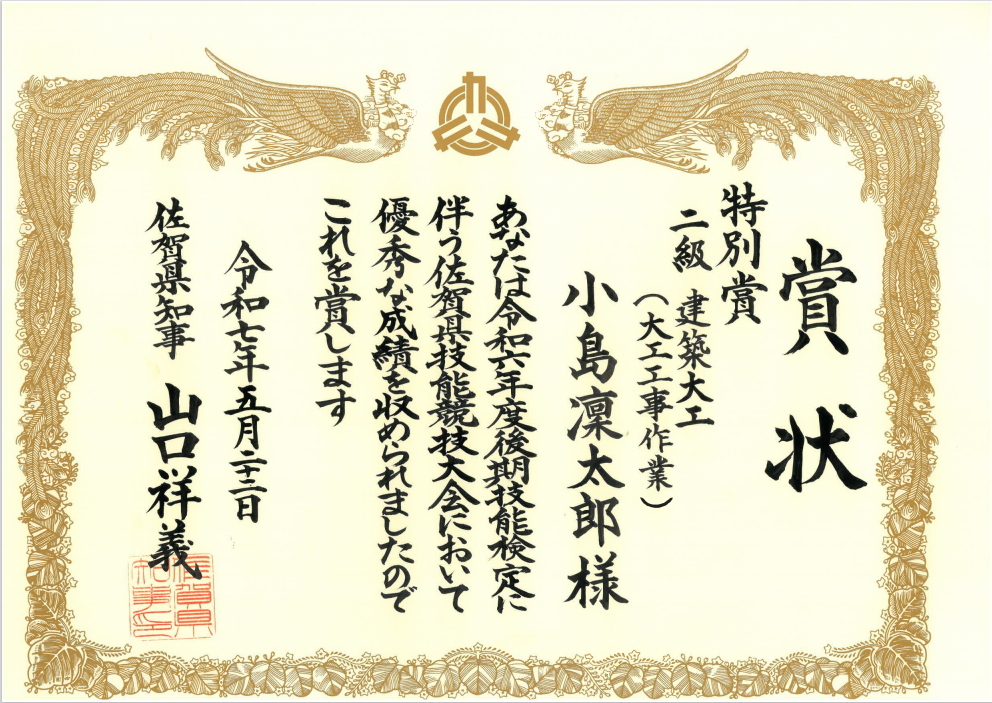 賞状
特別賞
二級 建築大工
（大工工事作業）
小島凜太郎様
あなたは令和六年度後期技能検定に
伴う佐賀県技能競技大会において
優秀な成績を収められましたので
これを賞します
令和七年五月二十二日
佐賀県知事 山口祥義
佐賀県知事印